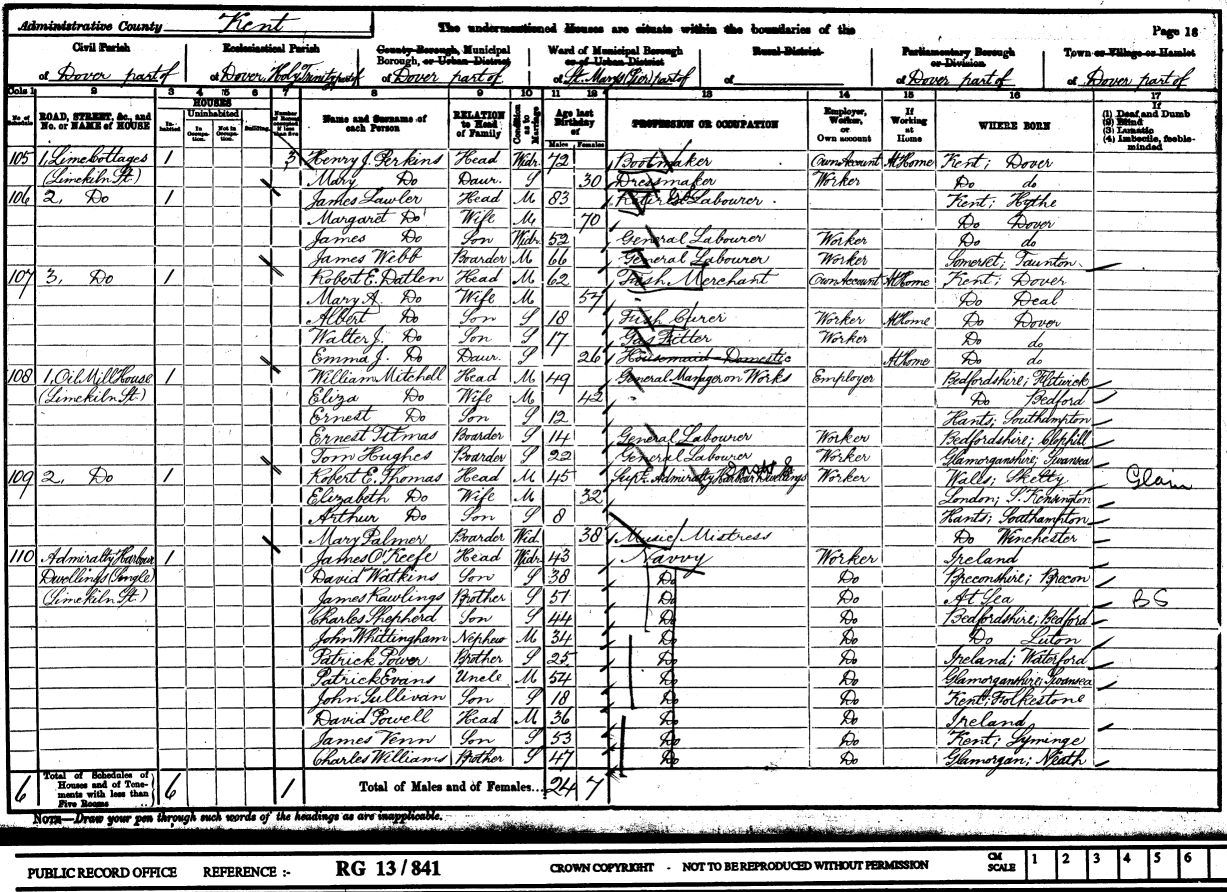 Administrative County Kent The undermentioned Houses are situate within the boundaries of the Page 18
Civil Parish Ecclesiastical Parish County Borough, Municipal Borough, or Urban District Ward of Municipal Borough or of Urban District Rural District Parliamentary Borough or Division Town or Village or Hamlet
of Dover part of of Dover Holy Trinity part of of Dover part of of St. Mary's (Pier) part of of of Dover part of of Dover part of
Cols 1 2 3 4 5 6 7 8 9 10 11 12 13 14 15 16 17
No. of Schedule ROAD, STREET, &c., and No. or NAME of HOUSE HOUSES Inhabited Uninhabited In Occupation Not in Occupation Building Name and Surname of each Person RELATION to Head of Family Condition as to Marriage Age last Birthday of Males Females PROFESSION OR OCCUPATION Employer, Worker, or Own account If Working at Home WHERE BORN If (1) Deaf and Dumb (2) Blind (3) Lunatic (4) Imbecile, feeble-minded
105 1, Lime Cottages 1 3 Henry J. Perkins Head Widr. 72 Bootmaker Own Account At Home Kent; Dover
(Limekiln St.) Mary Do Daur. S 30 Dressmaker Worker Do do
106 2, Do 1 James Lawler Head M 83 Labourer Kent; Hythe
Margaret Do Wife M 70 Do Dover
James Do Son Widr. 52 General Labourer Worker Do do
James Webb Boarder M 66 General Labourer Worker Somerset; Taunton
107 3, Do 1 Robert E. Datlen Head M 62 Fish Merchant Own Account At Home Kent; Dover
Mary A. Do Wife M 57 Do Deal
Albert Do Son S 18 Fish Curer Worker At Home Do Dover
Walter J. Do Son S 17 Gas Fitter Worker Do do
Emma J. Do Daur. S 26 Housemaid-Domestic At Home Do do
108 1, Oil Mill House 1 William Mitchell Head M 49 General Manager on Works Employer Bedfordshire; Flitwick
(Limekiln St.) Eliza Do Wife M 42 Do Bedford
Ernest Do Son S 12 Hants; Southampton
Ernest Titmas Boarder S 14 General Labourer Worker Bedfordshire; Clophill
Tom Hughes Boarder S 22 General Labourer Worker Glamorganshire; Swansea
109 2, Do 1 Robert E. Thomas Head M 45 Supt. Admiralty Harbour Dwellings Worker Walls; Sketty Glam
Elizabeth Do Wife M 32 London; S. Kensington
Arthur Do Son S 8 Hants; Southampton
Mary Palmer Boarder Wid. 38 Music Mistress Do Winchester
110 Admiralty Harbour 1 James O'Keefe Head Widr. 43 Navvy Worker Ireland
Dwellings (Single) David Watkins Son S 38 Do Do Breconshire; Brecon
(Limekiln St.) James Rawlings Brother S 51 Do Do At Sea BS
Charles Shepherd Son S 44 Do Do Bedfordshire; Bedford
John Whittingham Nephew M 34 Do Do Do Luton
Patrick Power Brother S 25 Do Do Ireland; Waterford
Patrick Evans Uncle M 54 Do Do Glamorganshire; Swansea
John Sullivan Son S 18 Do Do Kent; Folkestone
David Powell Head M 36 Do Do Ireland
James Venn Son S 53 Do Do Kent; Lyminge
Charles Williams Brother S 47 Do Do Glamorgan; Neath
6 Total of Schedules of Houses and of Tenements with less than Five Rooms 6 1 Total of Males and of Females... 24 7
NOTE—Draw your pen through such words of the headings as are inapplicable.
PUBLIC RECORD OFFICE REFERENCE :- RG 13 / 841 CROWN COPYRIGHT - NOT TO BE REPRODUCED WITHOUT PERMISSION CM SCALE 1 2 3 4 5 6